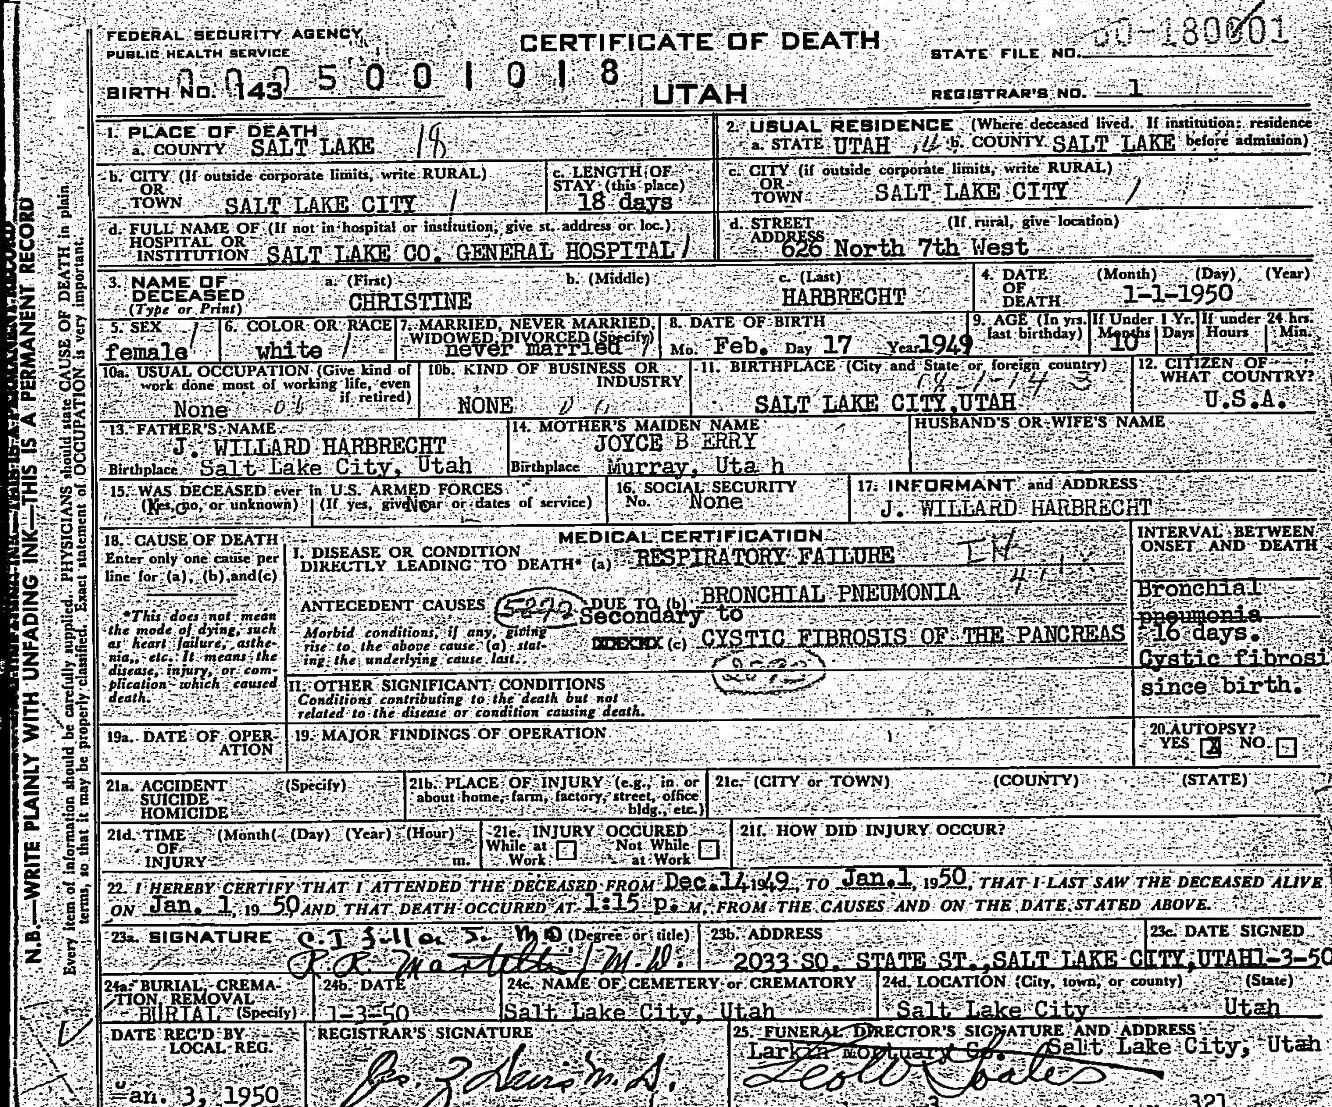 FEDERAL SECURITY AGENCY
PUBLIC HEALTH SERVICE
CERTIFICATE OF DEATH
UTAH
STATE FILE NO.
BIRTH NO. 143
REGISTRAR'S NO. 1
1. PLACE OF DEATH
a. COUNTY SALT LAKE 18
2. USUAL RESIDENCE (Where deceased lived. If institution: residence before admission)
a. STATE UTAH b. COUNTY SALT LAKE
b. CITY (If outside corporate limits, write RURAL)
OR
TOWN SALT LAKE CITY
c. LENGTH OF
STAY (this place)
18 days
c. CITY (if outside corporate limits, write RURAL)
OR
TOWN SALT LAKE CITY
d. FULL NAME OF (If not in hospital or institution, give st. address or loc.)
HOSPITAL OR
INSTITUTION SALT LAKE CO. GENERAL HOSPITAL
d. STREET (If rural, give location)
ADDRESS
626 North 7th West
3. NAME OF
DECEASED
(Type or Print)
a. (First) b. (Middle) c. (Last)
CHRISTINE HARBRECHT
4. DATE (Month) (Day) (Year)
OF
DEATH 1-1-1950
5. SEX
female
6. COLOR OR RACE
white
7. MARRIED, NEVER MARRIED,
WIDOWED, DIVORCED (Specify)
never married
8. DATE OF BIRTH
Mo. Feb. Day 17 Year 1949
9. AGE (In yrs. last birthday)
If Under 1 Yr.
Months Days
10
If under 24 hrs.
Hours Min.
10a. USUAL OCCUPATION (Give kind of
work done most of working life, even
if retired)
None
10b. KIND OF BUSINESS OR
INDUSTRY
NONE
11. BIRTHPLACE (City and State or foreign country)
SALT LAKE CITY, UTAH
12. CITIZEN OF
WHAT COUNTRY?
U.S.A.
13. FATHER'S NAME
J. WILLARD HARBRECHT
Birthplace Salt Lake City, Utah
14. MOTHER'S MAIDEN NAME
JOYCE B ERRY
Birthplace Murray, Uta h
HUSBAND'S OR WIFE'S NAME
15. WAS DECEASED ever in U.S. ARMED FORCES
(Yes, no, or unknown) (If yes, give war or dates of service)
No
16. SOCIAL SECURITY
No. None
17. INFORMANT and ADDRESS
J. WILLARD HARBRECHT
18. CAUSE OF DEATH
Enter only one cause per
line for (a), (b), and (c)
*This does not mean
the mode of dying, such
as heart failure, asthe-
nia, etc. It means the
disease, injury, or com
plication which caused
death.
MEDICAL CERTIFICATION
I. DISEASE OR CONDITION
DIRECTLY LEADING TO DEATH* (a) RESPIRATORY FAILURE
ANTECEDENT CAUSES DUE TO (b) BRONCHIAL PNEUMONIA
Secondary to
Morbid conditions, if any, giving
rise to the above cause (a) stat-
ing the underlying cause last.
(c) CYSTIC FIBROSIS OF THE PANCREAS
II. OTHER SIGNIFICANT CONDITIONS
Conditions contributing to the death but not
related to the disease or condition causing death.
INTERVAL BETWEEN
ONSET AND DEATH
Bronchial
pneumonia
16 days.
Cystic fibrosi
since birth.
19a. DATE OF OPER-
ATION
19. MAJOR FINDINGS OF OPERATION
20. AUTOPSY?
YES X NO
21a. ACCIDENT (Specify)
SUICIDE
HOMICIDE
21b. PLACE OF INJURY (e.g., in or
about home, farm, factory, street, office
bldg., etc.)
21c. (CITY or TOWN) (COUNTY) (STATE)
21d. TIME (Month) (Day) (Year) (Hour)
OF
INJURY m.
21e. INJURY OCCURED
While at Work Not While at Work
21f. HOW DID INJURY OCCUR?
22. I HEREBY CERTIFY THAT I ATTENDED THE DECEASED FROM Dec. 14 1949, TO Jan. 1, 1950, THAT I LAST SAW THE DECEASED ALIVE
ON Jan. 1, 1950, AND THAT DEATH OCCURED AT 1:15 p. M, FROM THE CAUSES AND ON THE DATE STATED ABOVE.
23a. SIGNATURE (Degree or title)
M.D.
23b. ADDRESS
2033 SO. STATE ST., SALT LAKE CITY, UTAH
23c. DATE SIGNED
1-3-50
24a. BURIAL, CREMA-
TION, REMOVAL
BURIAL (Specify)
24b. DATE
1-3-50
24c. NAME OF CEMETERY or CREMATORY
Salt Lake City, Utah
24d. LOCATION (City, town, or county) (State)
Salt Lake City Utah
DATE REC'D BY
LOCAL REG.
an. 3, 1950
REGISTRAR'S SIGNATURE
25. FUNERAL DIRECTOR'S SIGNATURE AND ADDRESS
Larkin Mortuary Co. Salt Lake City, Utah
321
N.B.—WRITE PLAINLY WITH UNFADING INK—THIS IS A PERMANENT RECORD
Every item of information should be carefully supplied. PHYSICIANS should state CAUSE OF DEATH in plain
terms, so that it may be properly classified. Exact statement of OCCUPATION is very important.